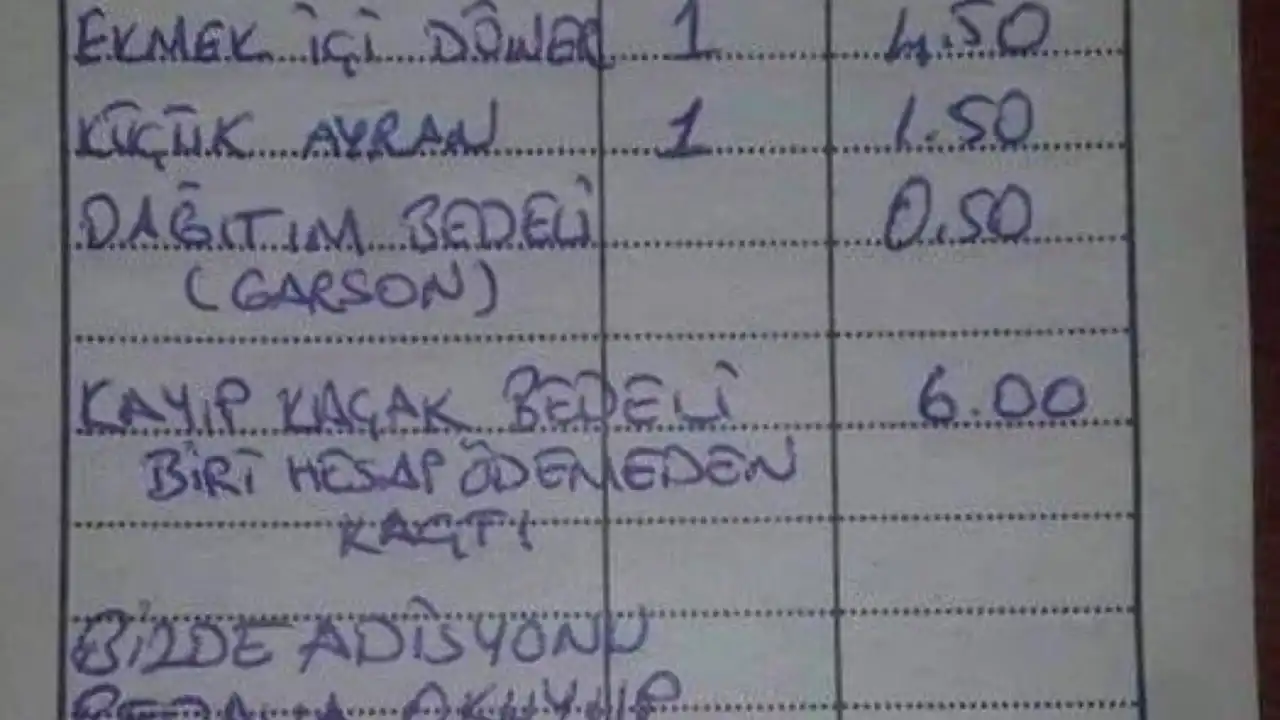 EKMEK İÇİ DÖNER 1 4.50
KÜÇÜK AYRAN 1 1.50
DAĞITIM BEDELİ 0.50
(GARSON)
KAYIP KAÇAK BEDELİ 6.00
BİRİ HESAP ÖDEMEDEN
KAÇTI
BİZDE ADİSYONU
OKUYUP